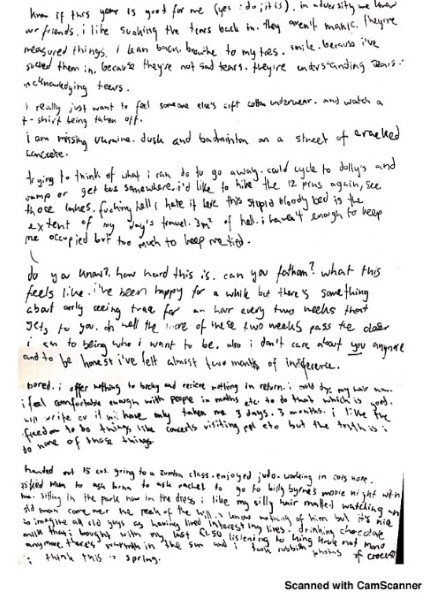 know if this year is good for me (yes: do; it is). in adversity we know
our friends. i like sucking the tears back in. they aren't manic. they're
measured things. i lean back. breathe to my toes. smile. because i've
sucked them in, because they're not sad tears. they're understanding tears.
acknowledging tears.
i really just want to feel someone else's soft cotton underwear. and watch a
t-shirt being taken off.
i am missing ukraine. dusk and badminton on a street of cracked
concrete.
trying to think of what i can do to go away. could cycle to dolly's and
camp or get bus somewhere. i'd like to hike the 12 pins again, see
those lakes. fucking hell i hate it here this stupid bloody bed is the
extent of my day's travel. 3m² of hell. i haven't enough to keep
me occupied but too much to keep me tied.
do you know? how hard this is. can you fathom? what this
feels like. i've been happy for a while but there's something
about only seeing trae for an hour every two weeks that
gets to you. oh well the more of these two weeks pass the closer
i am to being who i want to be. also i don't care about you anymore
and to be honest i've felt almost two months of indifference.
bored. i offer nothing to becky and receive nothing in return. i could dye my hair now.
i feel comfortable enough with people in maths etc. to do that which is good.
will write cv it will have only taken me 3 days. 3 months. i like the
freedom to do things like concerts visiting ppl etc but the truth is i
do none of those things
handed out 15 cvs. going to a zumba class. enjoyed judo. working in cors now.
asked mam to ask to ask rachel to go to billy byrnes movie night with
me. sitting in the park now in the dress i like my silly hair matted watching an
old man come over the peak of the hill. i know nothing of him but it's nice
to imagine all old guys as having lived interesting lives. drinking chocolate
milk that i bought with my last €1.50 listening to king krule not mono
anymore. there's warmth in the sun and i took rubbish photos of crocuses
i think this is spring.
Scanned with CamScanner